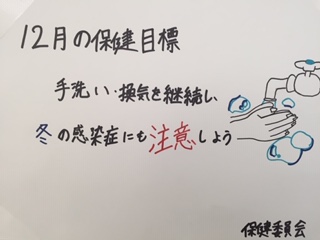 12月の保健目標
手洗い・換気を継続し、
冬の感染症にも注意しよう
保健委員会